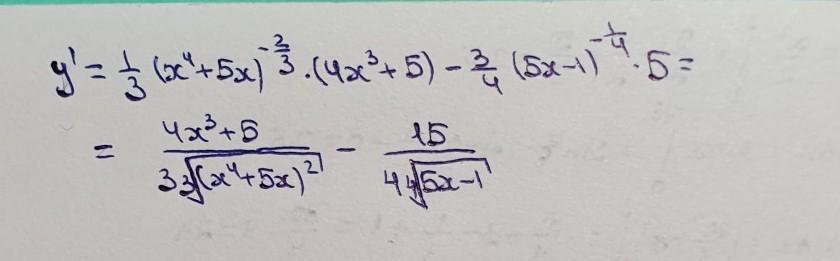 y' = 1/3 (x⁴+5x)^(-2/3) · (4x³+5) - 3/4 (5x-1)^(-1/4) · 5 =
= (4x³+5)/(3∛(x⁴+5x)²) - 15/(4∜(5x-1))